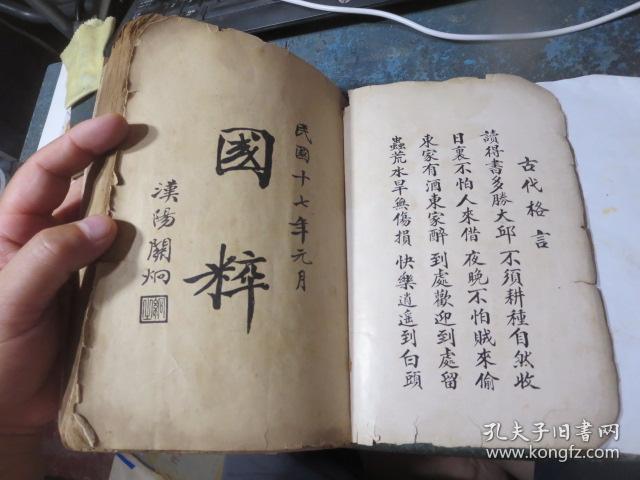 古代格言
讀得書多勝大邱 不須耕種自然收
日裏不怕人來借 夜晚不怕賊來偷
東家有酒東家醉 到處歡迎到處留
蟲荒水旱無傷損 快樂逍遙到白頭
民國十七年元月
國粹
漢陽關炯
孔夫子旧书网
www.kongfz.com